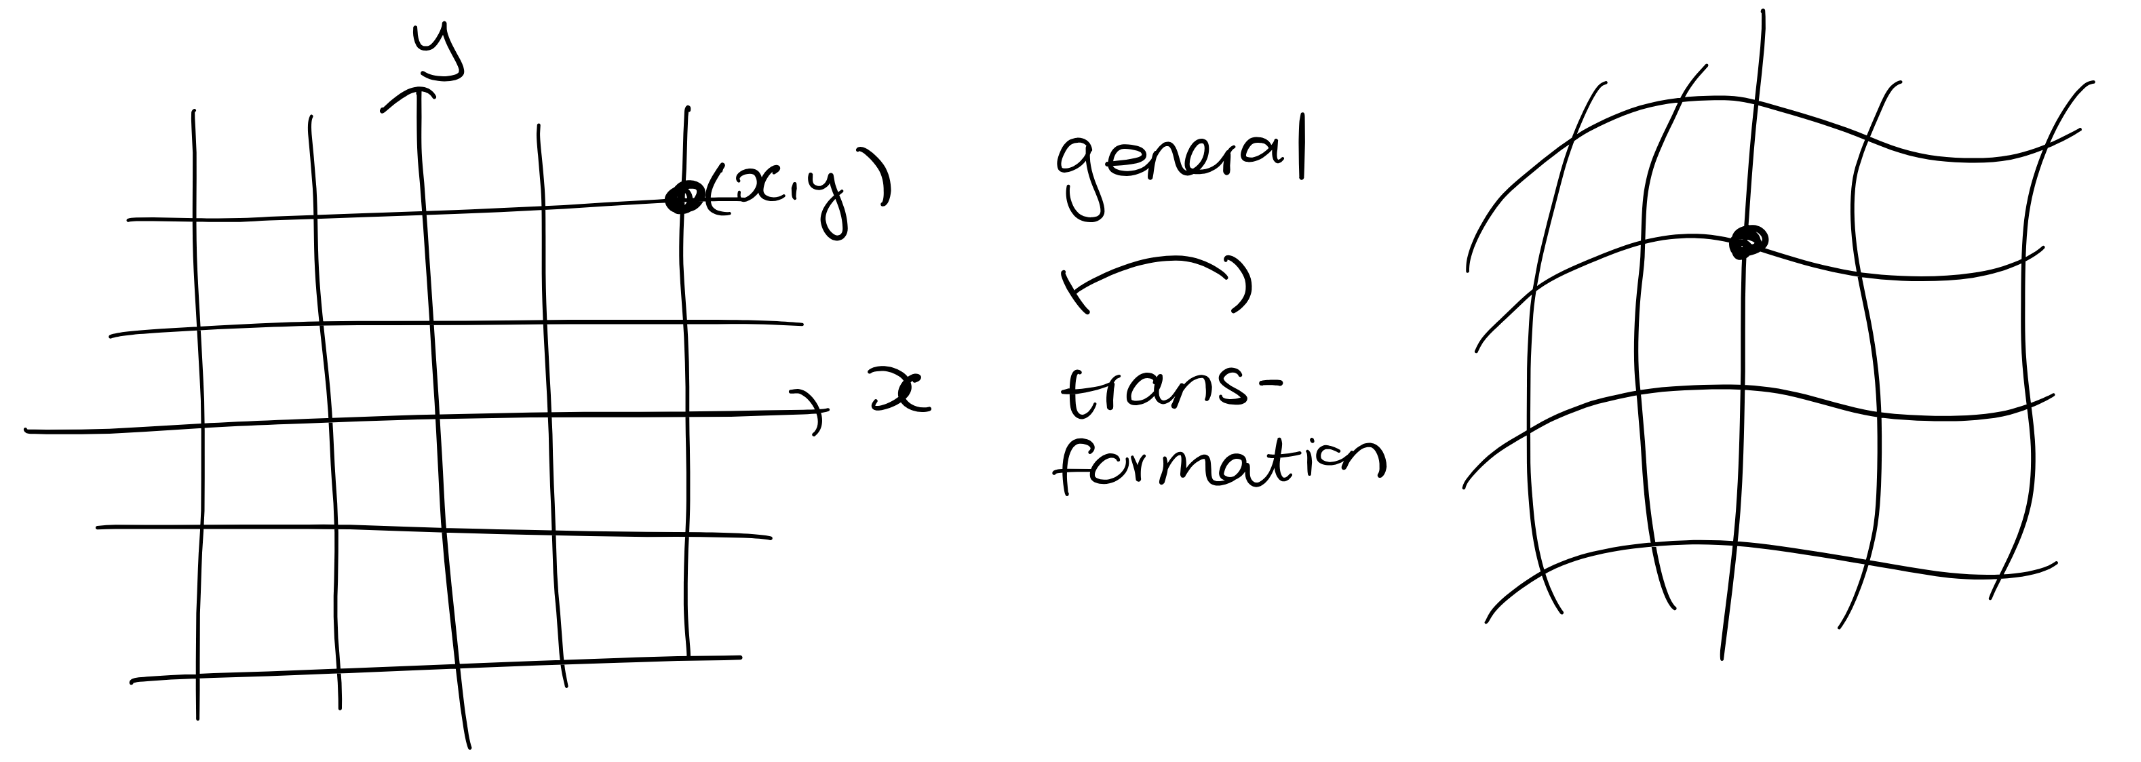 y
(x,y)
x
general
trans-
formation